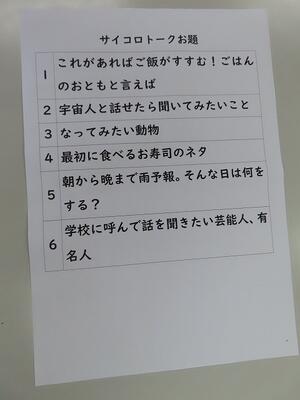 サイコロトークお題
1 これがあればご飯がすすむ！ごはん
のおともと言えば
2 宇宙人と話せたら聞いてみたいこと
3 なってみたい動物
4 最初に食べるお寿司のネタ
5 朝から晩まで雨予報。そんな日は何を
する？
6 学校に呼んで話を聞きたい芸能人、有
名人